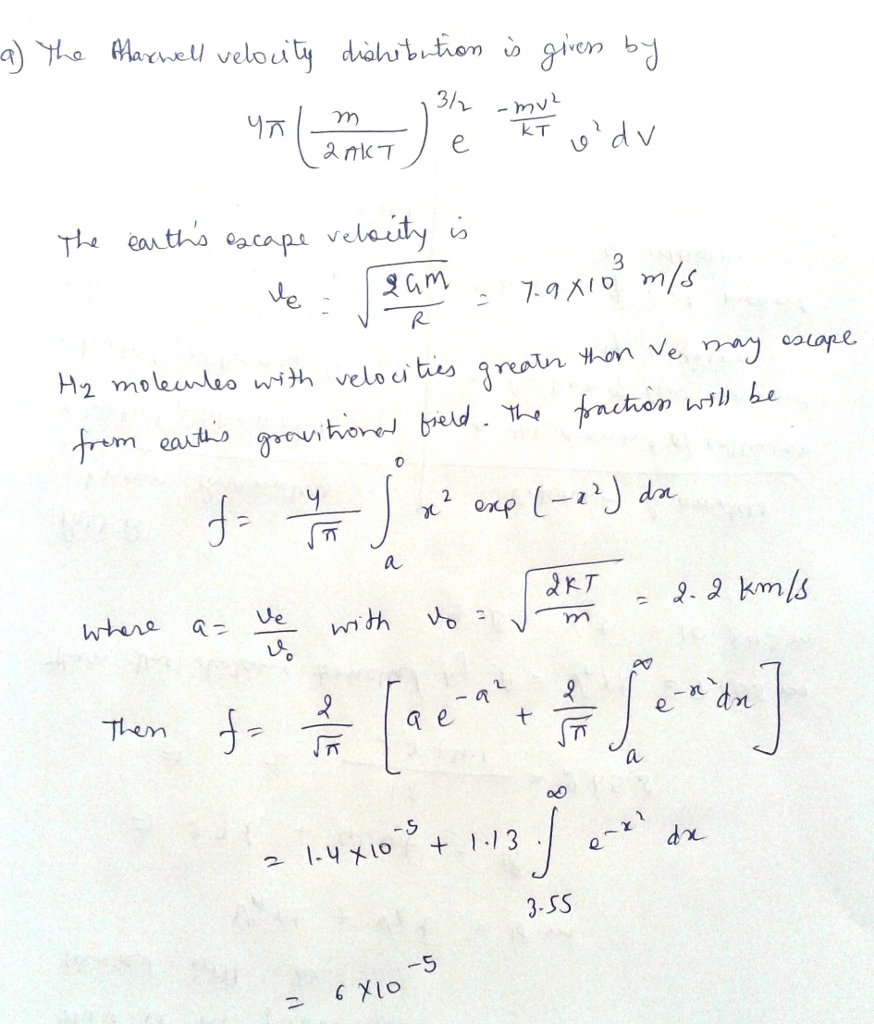 a) The Maxwell velocity distribution is given by
4π (m / 2πKT)^{3/2} e^{-mv²/KT} v² dV
The earth's escape velocity is
ve = √(2GM / R) = 7.9 X 10³ m/s
H2 molecules with velocities greater than Ve may escape
from earths gravitional field. The fraction will be
f = 4/√π ∫_a^0 x² exp (-x²) dx
where a = ve/vo with vo = √(2KT / m) = 2.2 km/s
Then f = 2/√π [a e^{-a²} + 2/√π ∫_a^∞ e^{-x²} dx]
= 1.4 X 10^{-5} + 1.13 · ∫_{3.55}^∞ e^{-x²} dx
= 6 X 10^{-5}